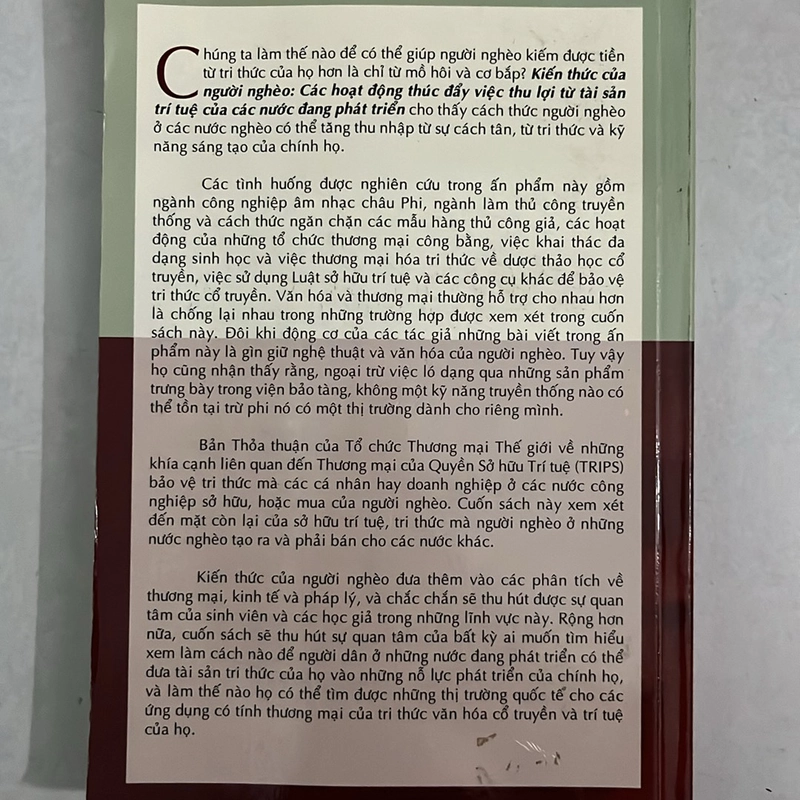 Chúng ta làm thế nào để có thể giúp người nghèo kiếm được tiền
từ tri thức của họ hơn là chỉ từ mồ hôi và cơ bắp? Kiến thức của
người nghèo: Các hoạt động thúc đẩy việc thu lợi từ tài sản
trí tuệ của các nước đang phát triển cho thấy cách thức người nghèo
ở các nước nghèo có thể tăng thu nhập từ sự cách tân, từ tri thức và kỹ
năng sáng tạo của chính họ.
Các tình huống được nghiên cứu trong ấn phẩm này gồm
ngành công nghiệp âm nhạc châu Phi, ngành làm thủ công truyền
thống và cách thức ngăn chặn các mẫu hàng thủ công giả, các hoạt
động của những tổ chức thương mại công bằng, việc khai thác đa
dạng sinh học và việc thương mại hóa tri thức về dược thảo học cổ
truyền, việc sử dụng Luật sở hữu trí tuệ và các công cụ khác để bảo vệ
tri thức cổ truyền. Văn hóa và thương mại thường hỗ trợ cho nhau hơn
là chống lại nhau trong những trường hợp được xem xét trong cuốn
sách này. Đôi khi động cơ của các tác giả những bài viết trong ấn
phẩm này là gìn giữ nghệ thuật và văn hóa của người nghèo. Tuy vậy
họ cũng nhận thấy rằng, ngoại trừ việc ló dạng qua những sản phẩm
trưng bày trong viện bảo tàng, không một kỹ năng truyền thống nào có
thể tồn tại trừ phi nó có một thị trường dành cho riêng mình.
Bản Thỏa thuận của Tổ chức Thương mại Thế giới về những
khía cạnh liên quan đến Thương mại của Quyền Sở hữu Trí tuệ (TRIPS)
bảo vệ tri thức mà các cá nhân hay doanh nghiệp ở các nước công
nghiệp sở hữu, hoặc mua của người nghèo. Cuốn sách này xem xét
đến mặt còn lại của sở hữu trí tuệ, tri thức mà người nghèo ở những
nước nghèo tạo ra và phải bán cho các nước khác.
Kiến thức của người nghèo đưa thêm vào các phân tích về
thương mại, kinh tế và pháp lý, và chắc chắn sẽ thu hút được sự quan
tâm của sinh viên và các học giả trong những lĩnh vực này. Rộng hơn
nữa, cuốn sách sẽ thu hút sự quan tâm của bất kỳ ai muốn tìm hiểu
xem làm cách nào để người dân ở những nước đang phát triển có thể
đưa tài sản tri thức của họ vào những nỗ lực phát triển của chính họ,
và làm thế nào họ có thể tìm được những thị trường quốc tế cho các
ứng dụng có tính thương mại của tri thức văn hóa cổ truyền và trí tuệ
của họ.